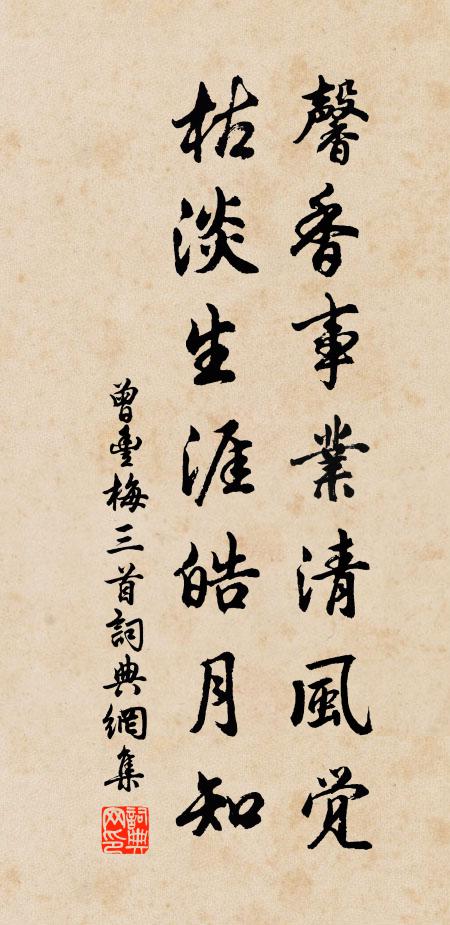 馨香事業清風覚
枯淡生涯皓月知
曾豊梅三首詞典網集
詞典網印